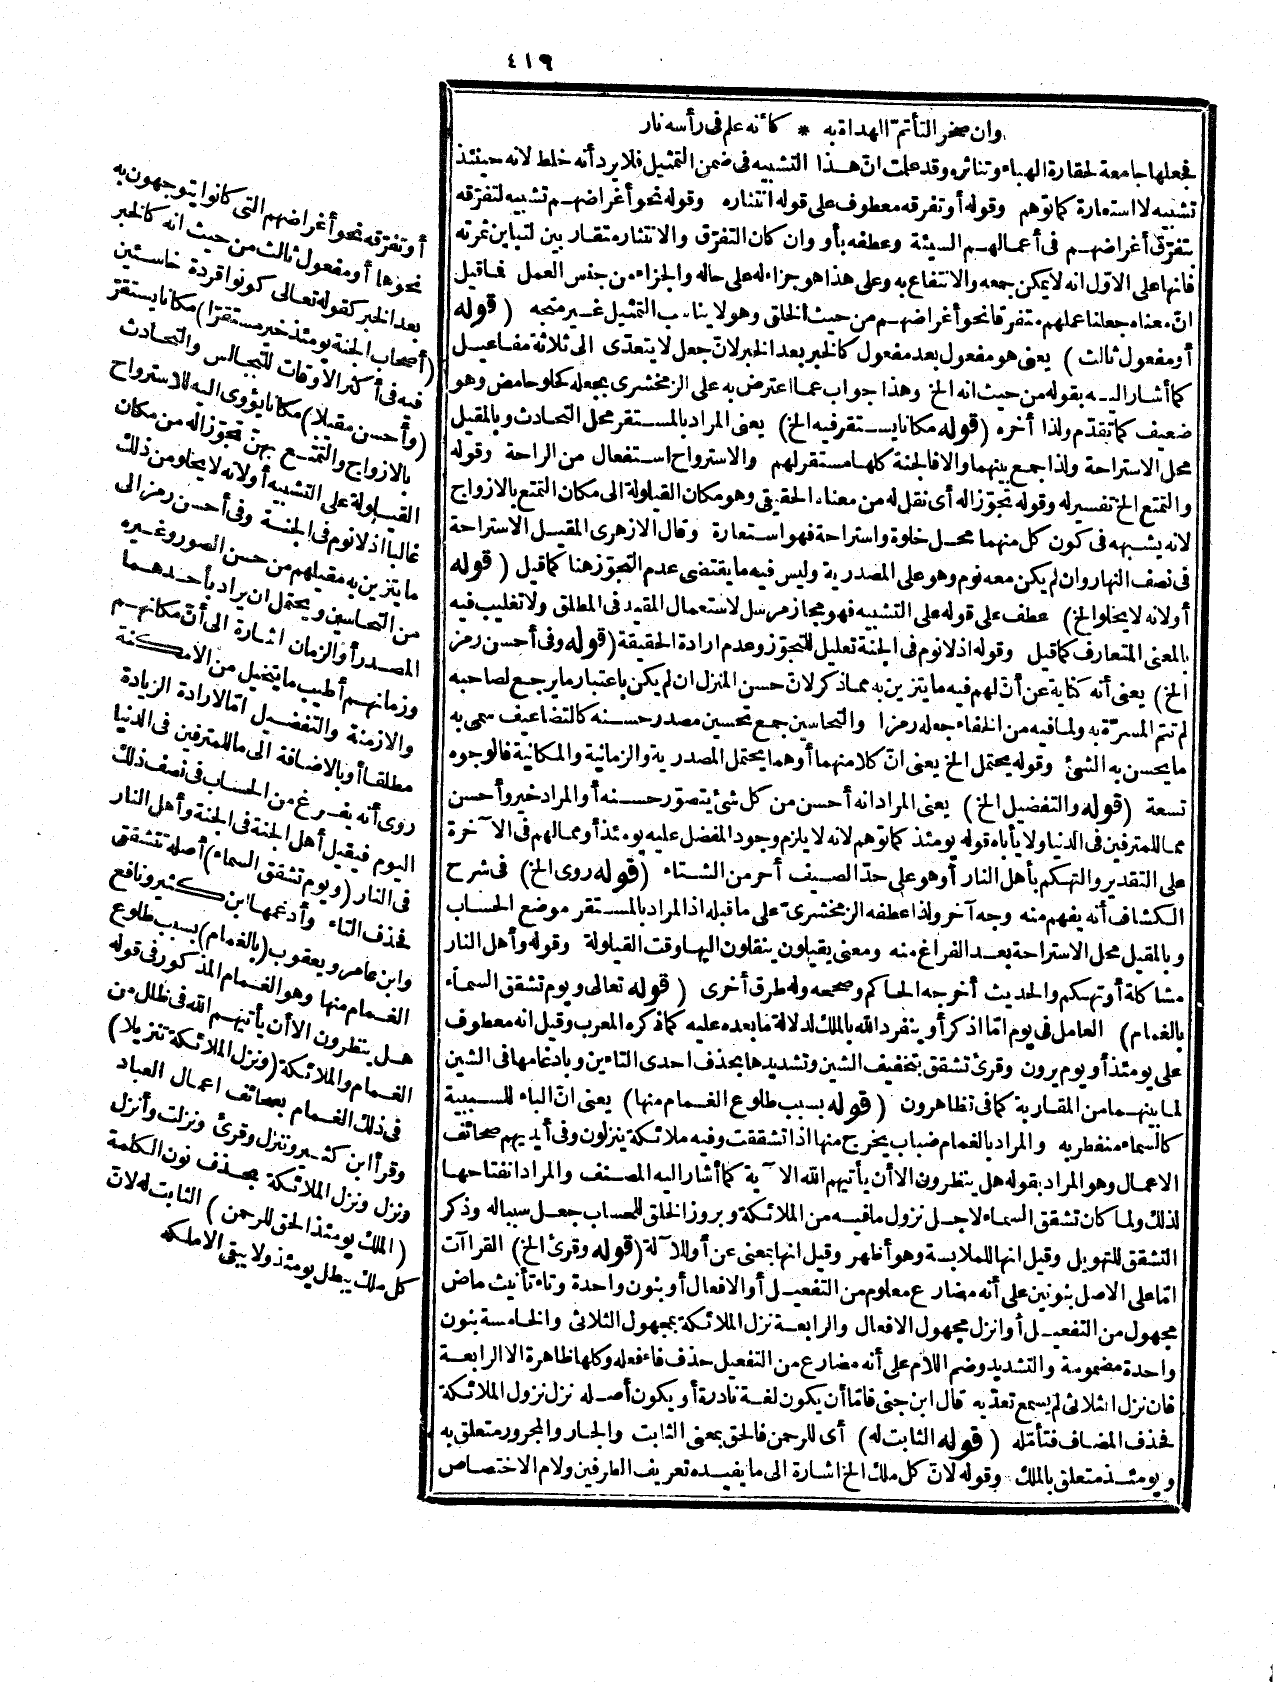 ٤١٩
وان صخر التأتم الهداة به * كأنه علم فى رأسه نار
فجعلها جامعة لحقارة الهباء وتناثره وقد علمت ان هذا التشبيه فى ضمن التمثيل فلا يرد أنه خلط لانه حينئذ
تشبيه لا استعارة كما توهم وقوله أو تفرقه معطوف على قوله انتثاره وقوله نحو أغراضهم تشبيه لتفرقه
بتفرق أغراضهم فى أعمالهم السيئة وعطفه بأو وان كان التفرق والانتثار متقاربين لتباين ثمرته
فانها على الاول انه لا يمكن جمعه والانتفاع به وعلى هذا هو جزاء له على حاله والجزاء من جنس العمل فما قيل
ان معناه جعلنا عملهم متفرقا نحو أغراضهم من حيث الخلق وهو لا يناسب التمثيل غير متجه (قوله
أو مفعول ثالث) يعنى هو مفعول بعد مفعول كالخبر بعد الخبر لان جعل لا يتعدى الى ثلاثة مفاعيل
كما أشار اليه بقوله من حيث انه الخ وهذا جواب عما اعترض به على الزمخشرى بجعله كحلو حامض وهو
ضعيف كما تقدم ولذا أخره (قوله مكانا يستقر فيه الخ) يعنى المراد بالمستقر محل التحادث وبالمقيل
محل الاستراحة ولذا جمع بينهما والا فالجنة كلها مستقر لهم والاسترواح استفعال من الراحة وقوله
والتمتع الخ تفسير له وقوله تجوزا له أى نقل له من معناه الحقيقى وهو مكان القيلولة الى مكان التمتع بالازواج
لانه يشبهه فى كون كل منهما محل خلوة واستراحة فهو استعارة وقال الازهرى المقيل الاستراحة
فى نصف النهار وان لم يكن معه نوم وهو على المصدرية وليس فيه ما يقتضى عدم التجوز هنا كما قيل (قوله
أو لانه لا يخلو الخ) عطف على قوله على التشبيه فهو مجاز مرسل لاستعمال المقيد فى المطلق ولا تغليب فيه
بالمعنى المتعارف كما قيل وقوله اذ لا نوم فى الجنة تعليل للتجوز وعدم ارادة الحقيقة (قوله وفى أحسن رمز
الخ) يعنى أنه كناية عن أن لهم فيه ما يتزين به مماذكر لان حسن المنزل ان لم يكن باعتبار ما يرجع لصاحبه
لم تتم المسرة به ولما فيه من الخفاء جعله رمزا والتحاسين جمع تحسين مصدر حسنه كالتضاعيف سمى به
ما يحسن به الشئ وقوله يحتمل الخ يعنى ان كلا منهما أو هما يحتمل المصدرية والزمانية والمكانية فالوجوه
تسعة (قوله والتفضيل الخ) يعنى المراد انه أحسن من كل شئ يتصور حسنه أو المراد خير وأحسن
مما للمترفين فى الدنيا ولا يأباه قوله يومئذ كما توهم لانه لا يلزم وجود المفضل عليه يومئذ أو مما لهم فى الآخرة
على التقدير والتهكم بأهل النار أو هو على حد الصيف أحر من الشتاء (قوله روى الخ) فى شرح
الكشاف أنه يفهم منه وجه آخر ولذا عطفه الزمخشرى على ما قبله اذ المراد بالمستقر موضع الحساب
وبالمقيل محل الاستراحة بعد الفراغ منه ومعنى يقيلون ينقلون اليها وقت القيلولة وقوله وأهل النار
مشاكلة أو تهكم والحديث أخرجه الحاكم وصححه وله طرق أخرى (قوله تعالى ويوم تشقق السماء
بالغمام) العامل فى يوم اما اذكر أو ينفرد الله بالملك لدلالة ما بعده عليه كما ذكره المعرب وقيل انه معطوف
على يومئذ أو يوم يرون وقرئ تشقق بتخفيف الشين وتشديدها بحذف احدى التاءين وبادغامها فى الشين
لما بينهما من المقاربة كما فى تظاهرون (قوله بسبب طلوع الغمام منها) يعنى ان الباء للسببية
كالسماء منفطر به والمراد بالغمام ضباب يخرج منها اذا تشققت وفيه ملائكة ينزلون وفى أيديهم صحائف
الاعمال وهو المراد بقوله هل ينظرون الا أن يأتيهم الله الآية كما أشار اليه المصنف والمراد انفتاحها
لذلك ولما كان تشقق السماء لاجل نزول ما فيه من الملائكة وبروز الخلق للحساب جعل سببا له وذكر
التشقق للتهويل وقيل انها للملابسة وهو أظهر وقيل انها بمعنى عن أو للآلة (قوله وقرئ الخ) القراآت
اما على الاصل بنونين على أنه مضارع معلوم من التفعيل أو الافعال أو بنون واحدة وتاء تأنيث ماض
مجهول من التفعيل أو انزل مجهول الافعال والرابعة نزل الملائكة بمجهول الثلاثى والخامسة بنون
واحدة مضمومة والتشديد وضم اللام على أنه مضارع من التفعيل حذف فاء فعله وكلها ظاهرة الا الرابعة
فان نزل الثلاثى لم يسمع تعديه قال ابن جنى فاما أن يكون لغة نادرة أو يكون أصله نزل نزول الملائكة
فحذف المضاف فتأمله (قوله الثابت له) أى للرحمن فالحق بمعنى الثابت والجار والمجرور متعلق به
ويومئذ متعلق بالملك وقوله لان كل ملك الخ اشارة الى ما يفيده تعريف الطرفين ولام الاختصاص
أو تفرقه نحو أغراضهم التى كانوا يتوجهون به
نحوها أو مفعول ثالث من حيث انه كالخبر
بعد الخبر كقوله تعالى كونوا قردة خاسئين
(أصحاب الجنة يومئذ خير مستقرا) مكانا يستقر
فيه فى أكثر الاوقات للتجالس والتحادث
(وأحسن مقيلا) مكانا يؤوى اليه للاسترواح
بالازواج والتمتع بهن تجوزا له من مكان
القيلولة على التشبيه أو لانه لا يخلو من ذلك
غالبا اذ لا نوم فى الجنة وفى أحسن رمز الى
ما يتزين به مقيلهم من حسن الصور وغيره
من التحاسين ويحتمل ان يراد بأحدهما
المصدر أو الزمان اشارة الى أن مكانهم
وزمانهم أطيب ما يتخيل من الامكنة
والازمنة والتفضيل اما لارادة الزيادة
مطلقا أو بالاضافة الى ما للمترفين فى الدنيا
روى أنه يفرغ من الحساب فى نصف ذلك
اليوم فيقيل أهل الجنة فى الجنة وأهل النار
فى النار (ويوم تشقق السماء) أصله تتشقق
فحذف التاء وأدغمها ابن كثير ونافع
وابن عامر ويعقوب (بالغمام) بسبب طلوع
الغمام منها وهو الغمام المذكور فى قوله
هل ينظرون الا أن يأتيهم الله فى ظلل من
الغمام والملائكة (ونزل الملائكة تنزيلا)
فى ذلك الغمام بصحائف اعمال العباد
وقرأ ابن كثير وننزل وقرئ ونزلت وأنزل
ونزل ونزل الملائكة بحذف نون الكلمة
(الملك يومئذ الحق للرحمن) الثابت له لان
كل ملك يبطل يومئذ ولا يبقى الا ملكه